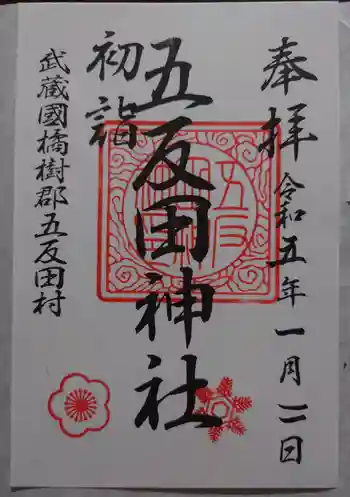 奉拝
令和五年一月二日
初詣
五反田神社
武蔵國橘樹郡五反田村